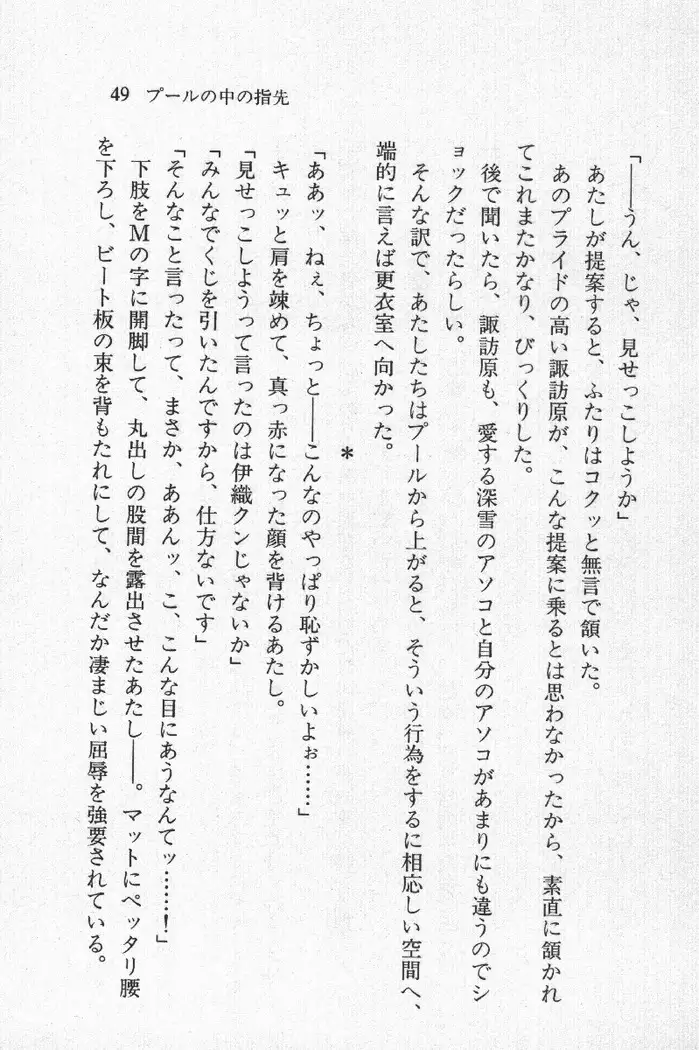 49 プールの中の指先
「――うん、じゃ、見せっこしようか」
あたしが提案すると、ふたりはコクッと無言で頷いた。
あのプライドの高い諏訪原が、こんな提案に乗るとは思わなかったから、素直に頷かれ
てこれまたかなり、びっくりした。
後で聞いたら、諏訪原も、愛する深雪のアソコと自分のアソコがあまりにも違うのでシ
ョックだったらしい。
そんな訳で、あたしたちはプールから上がると、そういう行為をするに相応しい空間へ、
端的に言えば更衣室へ向かった。
*
「ああッ、ねぇ、ちょっと――こんなのやっぱり恥ずかしいよぉ……」
キュッと肩を竦めて、真っ赤になった顔を背けるあたし。
「見せっこしようって言ったのは伊織クンじゃないか」
「みんなでくじを引いたんですから、仕方ないです」
「そんなこと言ったって、まさか、ああんッ、こ、こんな目にあうなんてッ……！」
下肢をMの字に開脚して、丸出しの股間を露出させたあたし――。マットにペッタリ腰
を下ろし、ビート板の束を背もたれにして、なんだか凄まじい屈辱を強要されている。